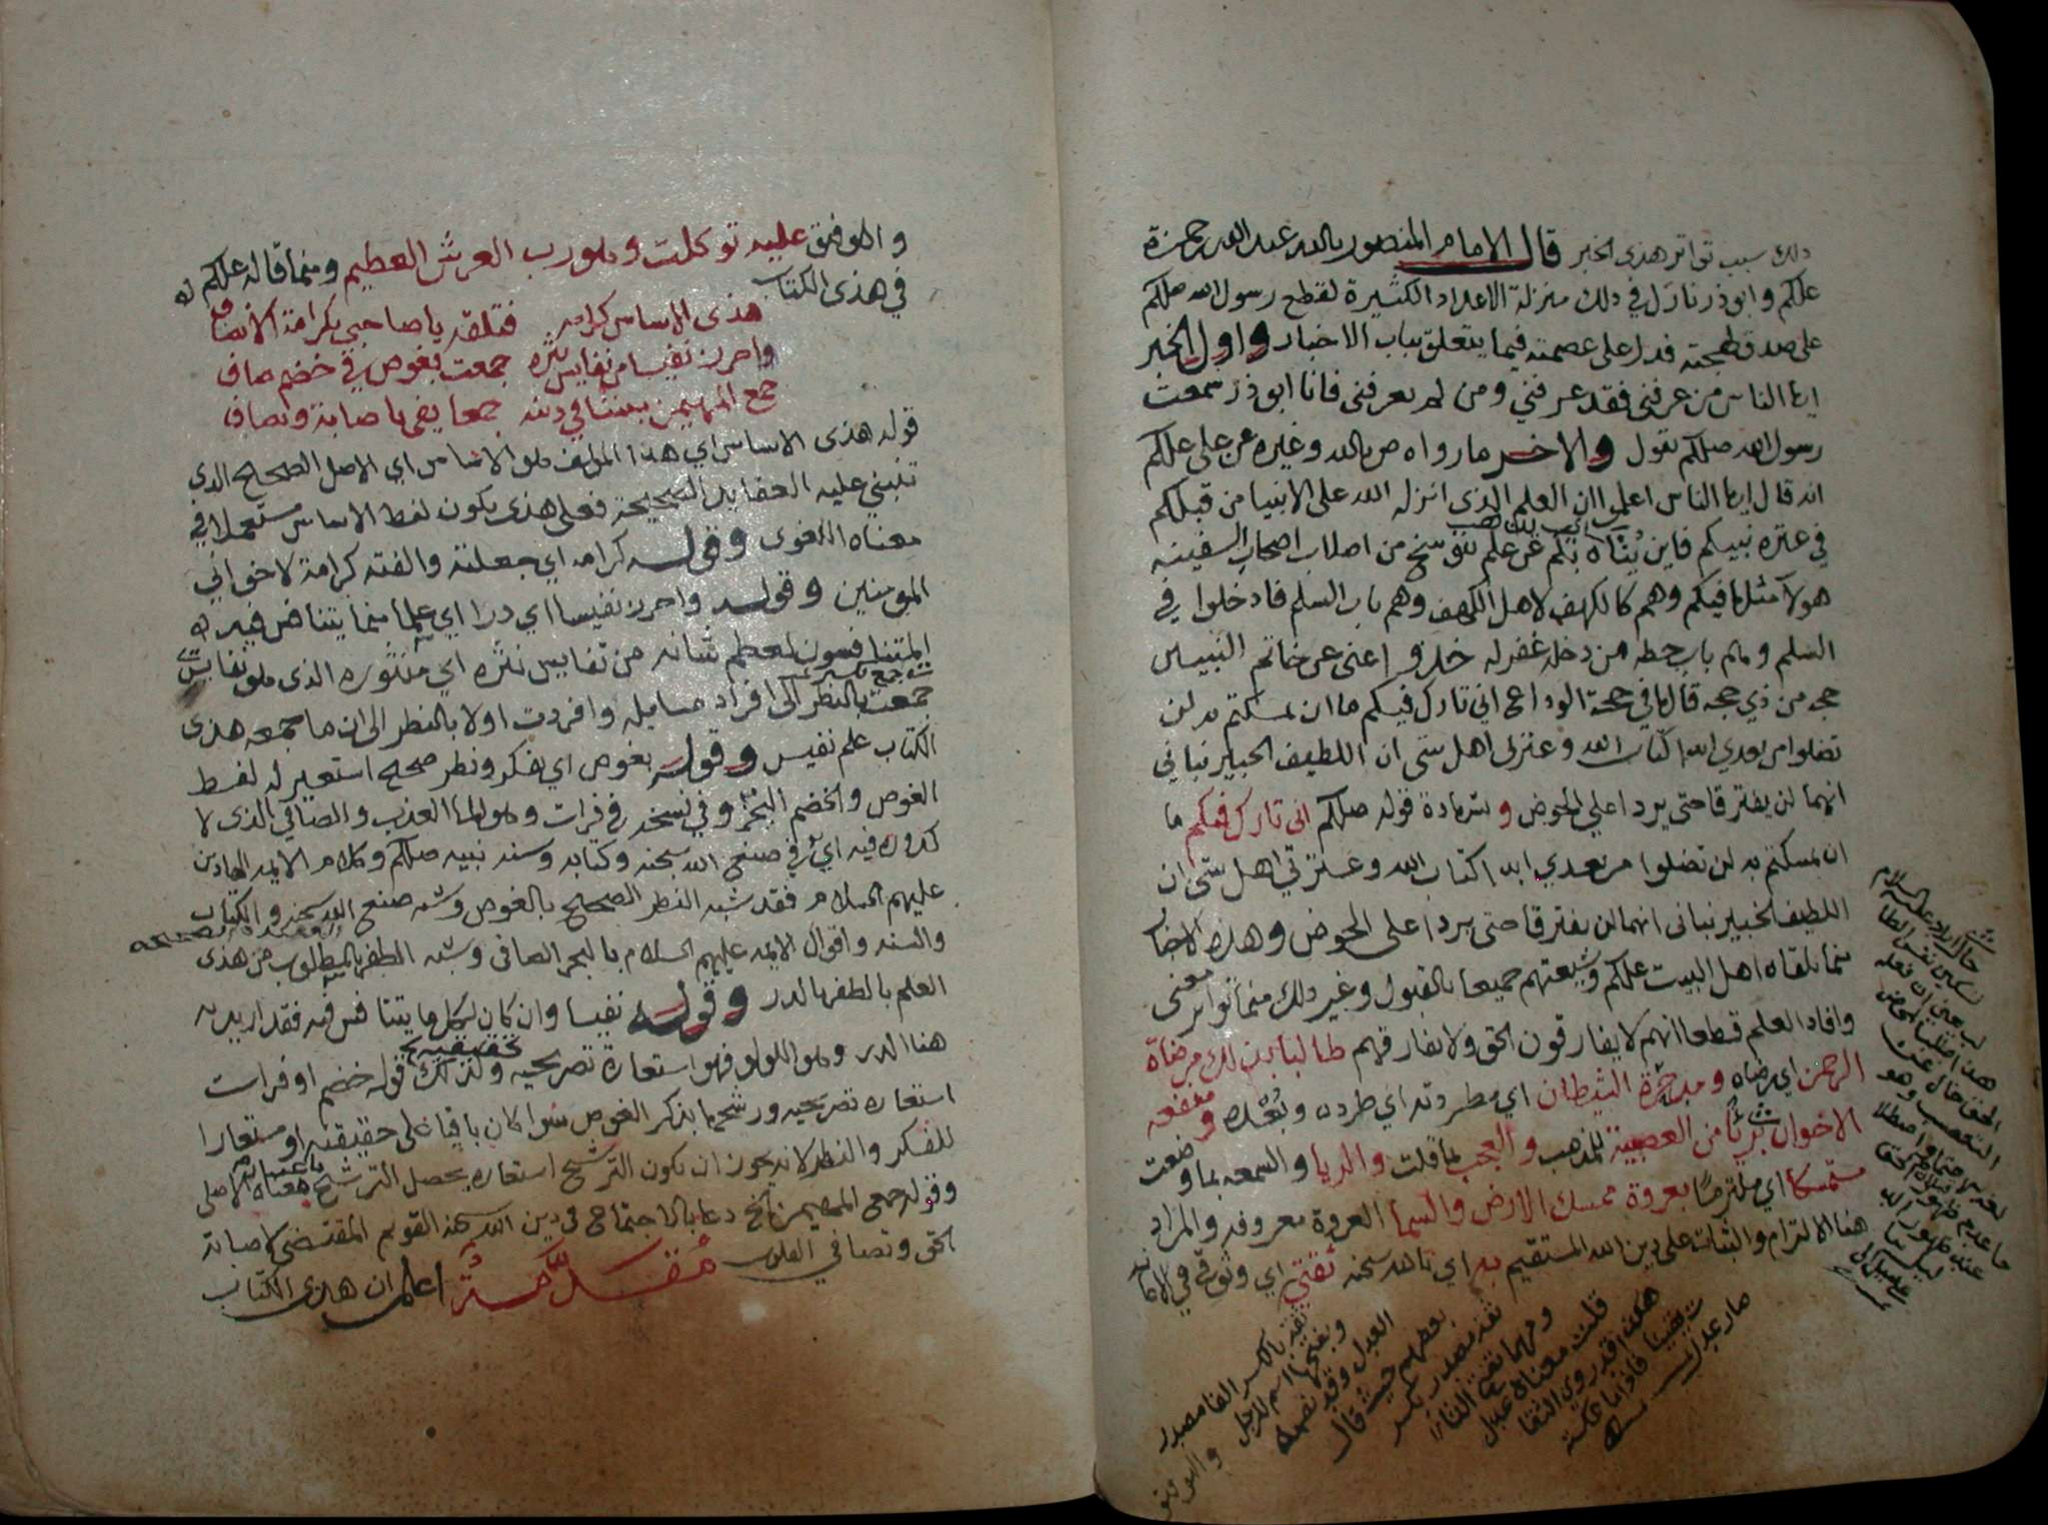 ذلك سبب تواتر هذى الخبر قال الامام المنصور بالله عبد الله بن حمزة
عليكم وابو ذر نازل في ذلك منزلة الاعداد الكثيرة لقطع رسول الله صلكم
على صدق لهجته فدل على عصمته فيما يتعلق بباب الاخبار واول الخبر
ايها الناس من عرفنى فقد عرفني ومن لم يعرفنى فانا ابو ذر سمعت
رسول الله صلكم يقول والاخر ما رواه ص بالله وغيره عن علي علكم
انه قال ايها الناس اعلموا ان العلم الذى انزله الله على الانبيا من قبلكم
في عتره نبيكم فاين يتاه بكم عن علم تنوسخ من اصلاب اصحاب السفينه
هولآ مثلها فيكم وهم كالكهف لاهل الكهف وهم باب السلم فادخلوا في
السلم وهم باب حطه من دخله غفر له خذوا عنى عن خاتم النبيين
حجه من ذي حجه قالها في حجة الوداع اني تارك فيكم ما ان تمسكتم به لن
تضلوا من بعدي ابدا كتاب الله وعترتى اهل بيتى ان اللطيف الخبير نباني
انهما لن يفترقا حتى يردا علي الحوض وشهادة قوله صلكم انى تارك فيكم ما
ان تمسكتم به لن تضلوا من بعدي ابدا كتاب الله وعترتي اهل بيتى ان
اللطيف الخبير نبانى انهما لن يفترقا حتى يردا على الحوض وهذه الاخبار
مما تلقاه اهل البيت علكم وشيعتهم جميعا بالقبول وغير ذلك مما تواتر معنى
وافاد العلم قطعا انهم لا يفارقون الحق ولا يفارقهم طالبا بذلك مرضاة
الرحمن اي رضاه ومدحرة الشيطان اي مطردته اي طرده وبعده ومنفعه
الاخوان بريًا من العصبية للمذهب والعجب بما قلت والريا والسمعه بما وضعت
متمسكا اي ملتزمًا بعروة ممسك الارض والسما العروة معروفه والمراد
هنا الالتزام والثبات على دين الله المستقيم به اي بالله سبحنه ثقتي اي وثوقي في الاعانه
ثقة بالكسر الفا مصدر
وبفتحها اسم للرجل
العدل وقد نصمه
بعضهم حيث قال
ثقة مصدر بكسر
ومهما تفتح الفا
قلت معناه عدل
هكذا قد روى الثقا
ت يقينا فاذا ما عكسته
والموفق
والموفق عليه توكلت وهو رب العرش العظيم ومما قاله علكم
في هذى الكتاب
هذى الاساس كرامه فتلقه يا صاحبي بكرامة الانصاف
واحرز نفيسا من نفايس نثره جمعت بغوص في خضم صاف
جمع المهيمن بيننا في دينه جمعا يفى باصابة وتصاف
قوله هذى الاساس اي هذا المولف هو الاساس اي الاصل الصحيح الذى
تنبني عليه العقايد الصحيحة فعلى هذى يكون لفظ الاساس مستعملا في
معناه اللغوى وقوله كرامه اي جعلته والفته كرامة لاخواني
المومنين وقوله واحرز نفيسا اي درا اي علما مما يتنافس فيه
المتنافسون لعظم شانه من نفايس نثره اي منثوره الذى هو نفايس
جمعت بالنظر الى افراد مسايله وافردت اولا بالنظر الى ان ما جمعه هذى
الكتاب علم نفيس وقوله بغوص اي بفكر ونظر صحيح استعير له لفظ
الغوص والخضم البحر وفي نسخه في فرات وهو الما العذب والصافي الذى لا
كدوره فيه اي في صنع الله سبحنه وكتابه وسنه نبيه صلكم وكلام الايمه الهادين
عليهم السلام فقد شبه النظر الصحيح بالغوص وشبه صنع الله سبحنه والكتاب
والسنه واقوال الايمه عليهم السلام بالبحر الصافى وشبه الظفر بالمطلوب من هذى
العلم بالظفر بالدر وقوله نفيسا وان كان لكل ما يتنافس فيه فقد اريد به
هنا الدر وهو اللولو فهو استعارة تصريحيه تحقيقيه وكذلك قوله خضم او فرات
استعاره تصريحيه ورشحها بذكر الغوص سوا كان باقيا على حقيقته او مستعارا
للفكر والنظر لانه يجوز ان يكون الترشيح استعاره يحصل الترشيح باعتبار معناه الاصلى
وقوله جمع المهيمن الخ دعا بالاجتماع في دين الله سبحنه القويم المقتضى لاصابة
الحق وتصافي القلوب مُقَدِّمَةٌ اعلم ان هذى الكتاب